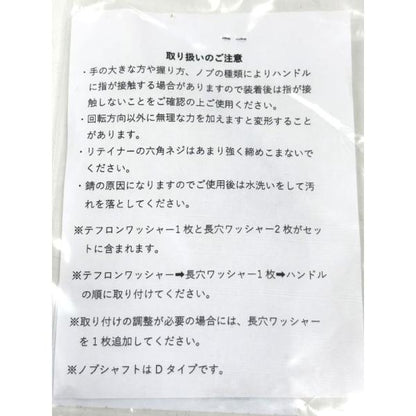 取り扱いのご注意
・手の大きな方や握り方、ノブの種類によりハンドル
に指が接触する場合がありますので装着後は指が接
触しないことをご確認の上ご使用ください。
・回転方向以外に無理な力を加えますと変形すること
があります。
・リテイナーの六角ネジはあまり強く締めこまないで
ください。
・錆の原因になりますのでご使用後は水洗いをして汚
れを落としてください。
※テフロンワッシャー1枚と長穴ワッシャー2枚がセッ
トに含まれます。
※テフロンワッシャー➡長穴ワッシャー1枚➡ハンドル
の順に取り付けてください。
※取り付けの調整が必要の場合には、長穴ワッシャー
を1枚追加してください。
※ノブシャフトはDタイプです。